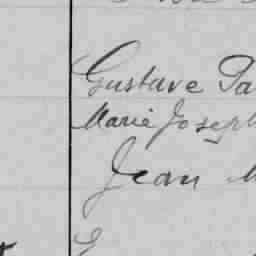 Gustave Pa
Marie Joseph
Jean M